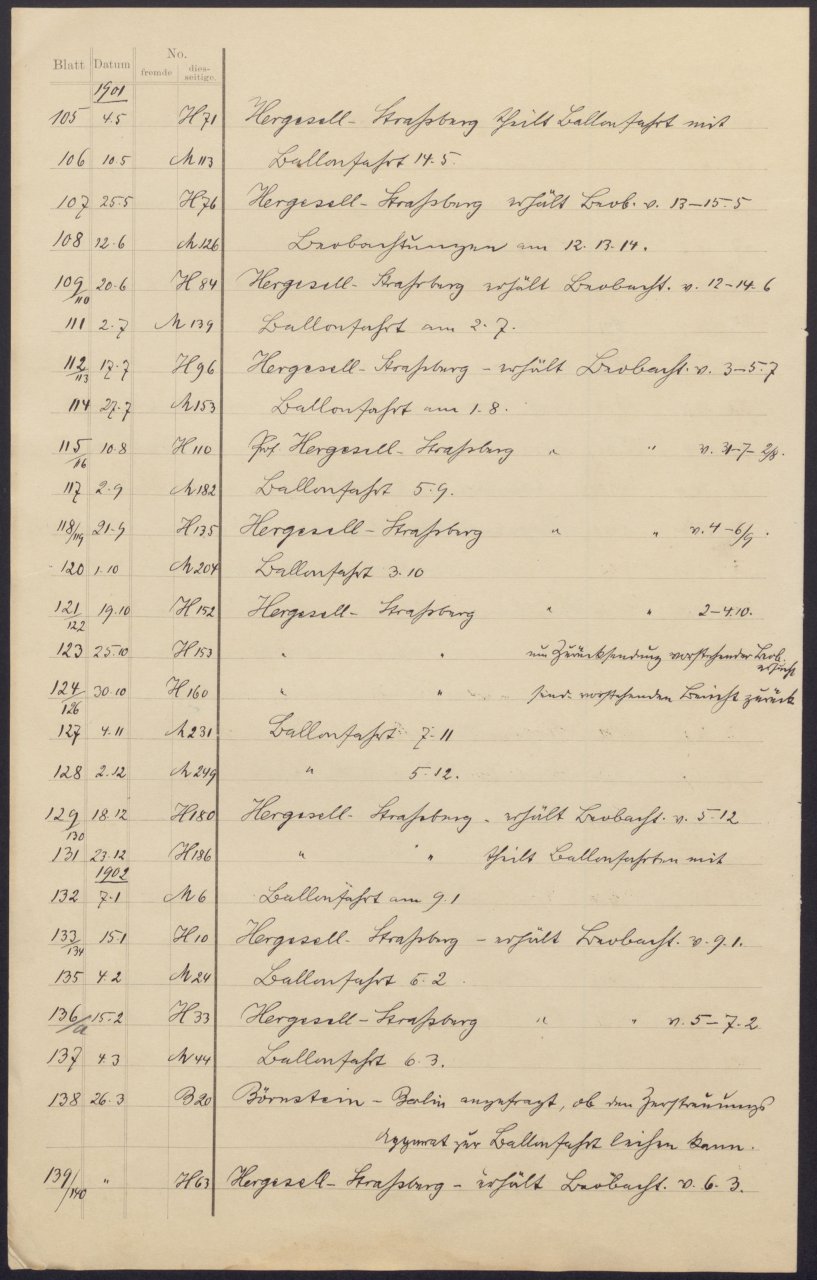 Blatt Datum No. fremde dies-seitige.
1901
105 4.5 H71 Hergesell - Straßberg theilt Ballonfahrt mit
106 10.5 M113 Ballonfahrt 14.5.
107 25.5 H76 Hergesell - Straßberg erhält Beob. v. 13-15.5
108 12.6 M126 Beobachtungen am 12.13.14.
109/110 20.6 H84 Hergesell - Straßberg erhält Beobacht. v. 12-14.6
111 2.7 M139 Ballonfahrt am 2.7.
112/113 17.7 H96 Hergesell - Straßberg - erhält Beobacht. v. 3-5.7
114 27.7 M153 Ballonfahrt am 1.8.
115/116 10.8 H110 Prof Hergesell - Straßberg " " v. 31.7-2/8.
117 2.9 M182 Ballonfahrt 5.9.
118/119 21.9 H135 Hergesell - Straßberg " " v. 4-6/9.
120 1.10 M204 Ballonfahrt 3.10
121/122 19.10 H152 Hergesell - Straßberg " " 2-4.10.
123 25.10 H153 " " um Zurücksendung vorstehender Beob. ersucht
124/126 30.10 H160 " " send. vorstehenden Bericht zurück
127 4.11 M231 Ballonfahrt 7.11
128 2.12 M249 " 5.12.
129/130 18.12 H180 Hergesell - Straßburg - erhält Beobacht. v. 5.12
131 23.12 H186 " " theilt Ballonfahrten mit
1902
132 7.1 M6 Ballonfahrt am 9.1
133/134 15.1 H10 Hergesell - Straßberg - erhält Beobacht. v. 9.1.
135 4.2 M24 Ballonfahrt 6.2.
136/a 15.2 H33 Hergesell - Straßberg " " v. 5-7.2
137 4.3 M44 Ballonfahrt 6.3.
138 26.3 B20 Börnstein - Berlin angefragt, ob den Zerstreuungs
apparat zur Ballonfahrt leihen kann.
139/140 " H63 Hergesell - Straßberg - erhält Beobacht. v. 6.3.